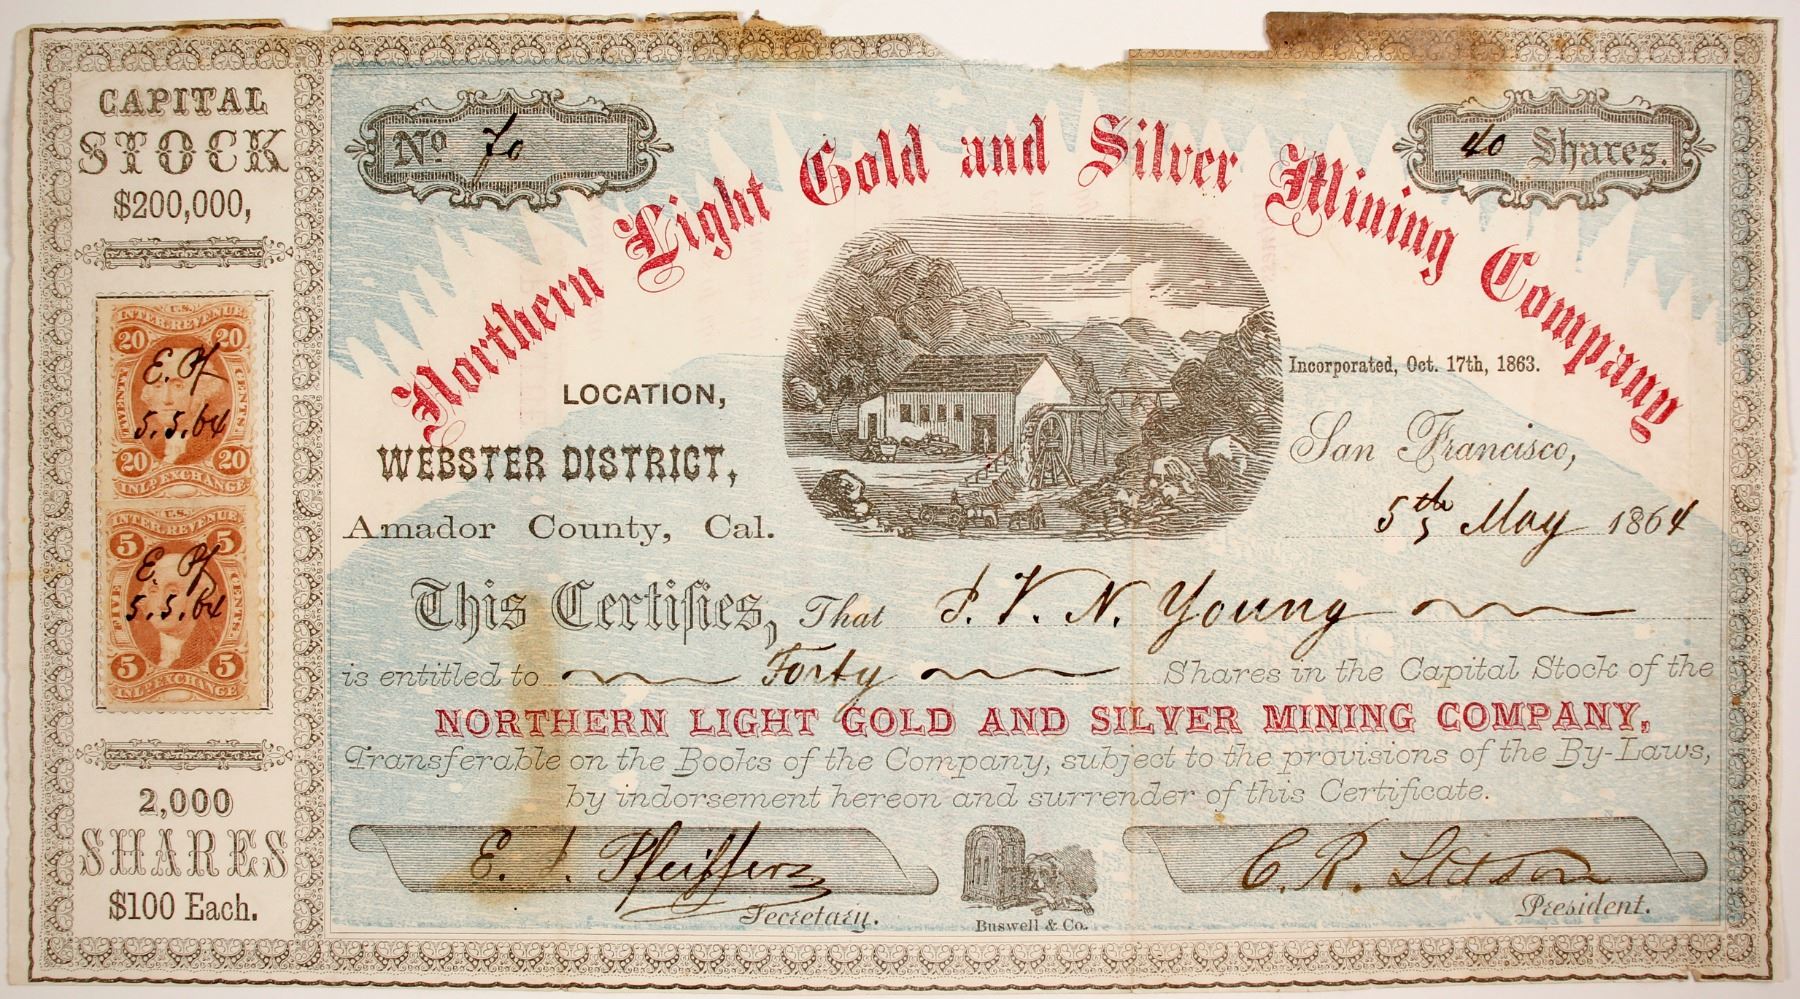 CAPITAL
STOCK
$200,000,
U.S.
INTER. REVENUE
20 20
E. Pf
5.5.64
TWENTY CENTS.
20 20
INL. EXCHANGE
U.S.
INTER. REVENUE
5 5
E. Pf
5.5.64
FIVE CENTS.
5 5
INL. EXCHANGE
2,000
SHARES
$100 Each.
No 70
40 Shares.
Northern Light Gold and Silver Mining Company
LOCATION,
WEBSTER DISTRICT,
Amador County, Cal.
Incorporated, Oct. 17th, 1863.
San Francisco,
5th May 1864
This Certifies, That J. V. N. Young
is entitled to Forty Shares in the Capital Stock of the
NORTHERN LIGHT GOLD AND SILVER MINING COMPANY,
Transferable on the Books of the Company, subject to the provisions of the By-Laws,
by indorsement hereon and surrender of this Certificate.
E. Pfeiffer
Secretary.
Buswell & Co.
C. R.
President.